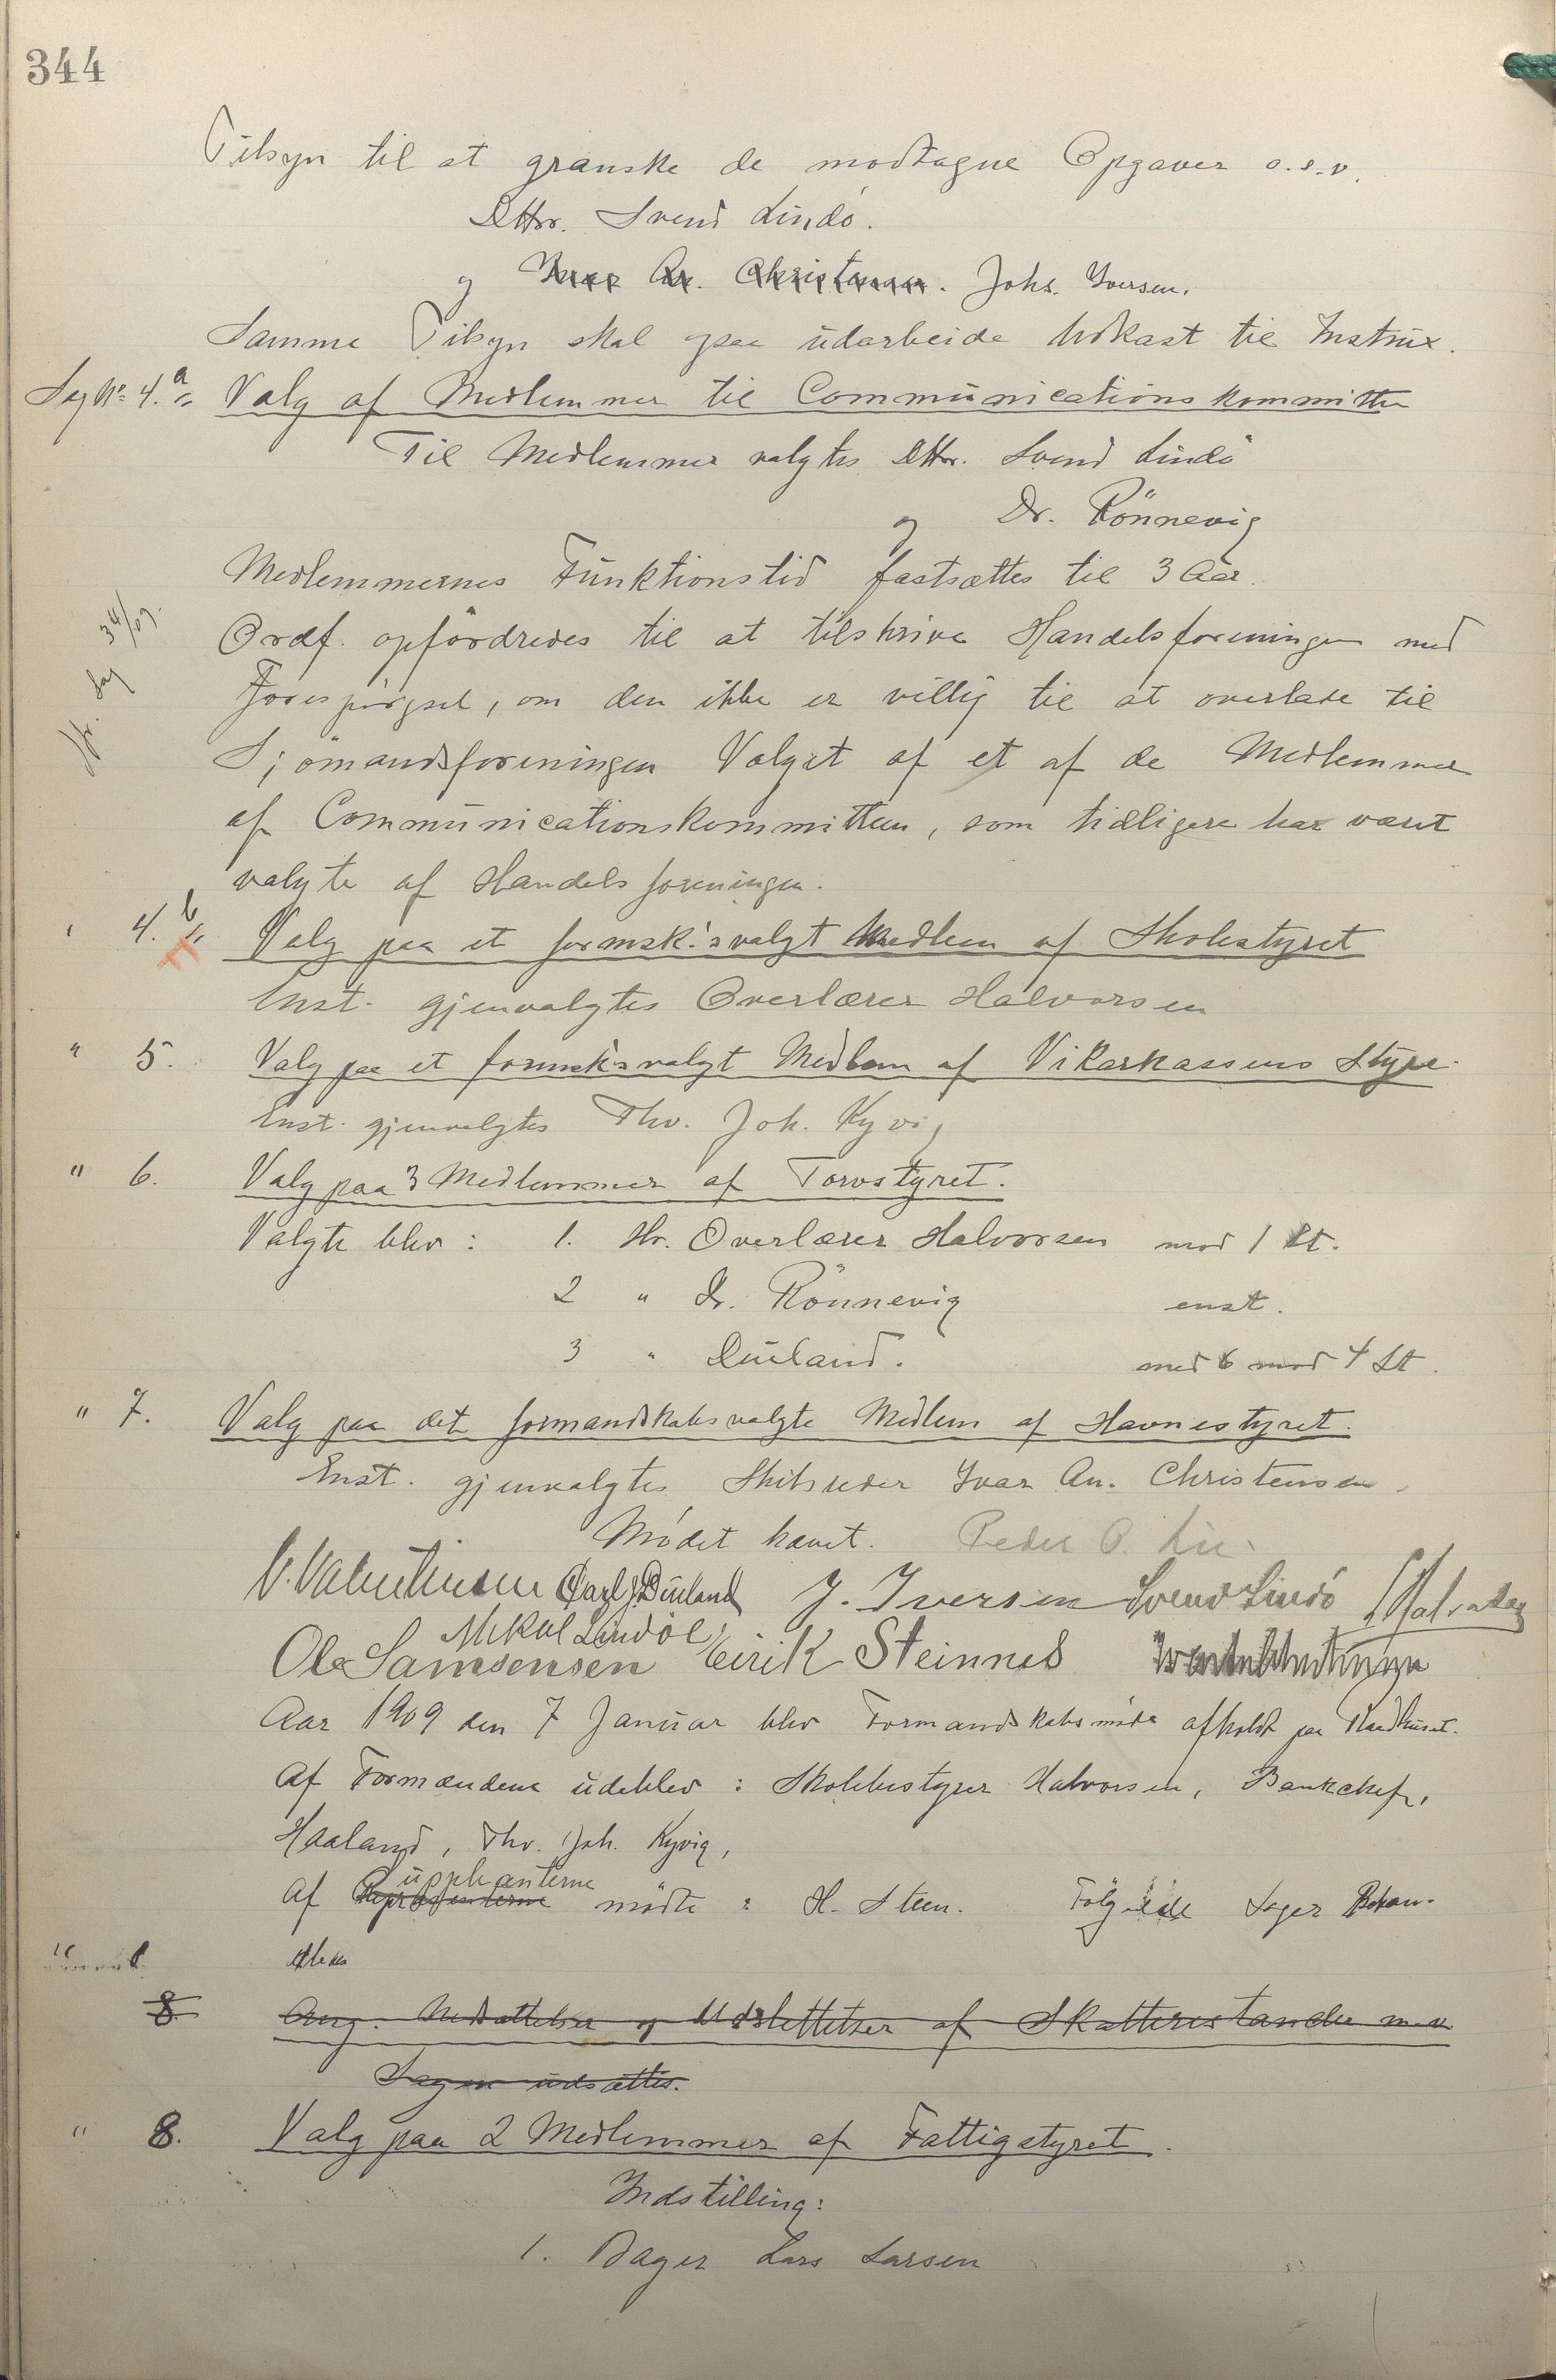 344
Tilsyn til at granske de modtagne Opgaver o.s.v.
DHrr. Svend Lindö.
og Ivar An. Christensen. Johs. Iversen.
Samme Tilsyn skal ogsaa udarbeide Udkast til Instrux.
Sag No 4.a Valg af Medlemmer til Communicationskommitte
Til Medlemmer valgtes DHrr. Svend Lindö
og Dr. Rönnevig
Medlemmernes Funktionstid fastsættes til 3 Aar.
Jfr. Sag 34/09.
Ordf. opfordredes til at tilskrive Handelsforeningen med
Forespörgsel, om den ikke er villig til at overlade til
Sjömandsforeningen Valget af et af de Medlemmer
af Communicationskommitteen, som tidligere har været
valgte af Handelsforeningen.
" 4.b Valg paa et formsk.'svalgt Medlem af Skolestyret
Enst. gjenvalgtes Overlærer Halvorsen
" 5. Valg paa et formsk'svalgt Medlem af Vikarkassens Styre.
Enst. gjenvalgtes Thv. Joh. Kyvig
" 6. Valg paa 3 Medlemmer af Torvstyret.
Valgte blev: 1. Hr. Overlærer Halvorsen mod 1 St.
2 " Dr. Rönnevig enst.
3 " Dueland. med 6 mod 4 St.
" 7. Valg paa det formandskabsvalgte Medlem af Havnestyret.
Enst. gjenvalgtes Skibsreder Ivar An. Christensen.
Mödet hævet. Peder O. Lie.
V. Valentinsen Carl J. Dueland J. Iversen Svend Lindö Halvorsen
Mikal Lindöe
Ole Samsonsen Eirik Steinnes
Aar 1909 den 7 Januar blev Formandskabsmöde afholdt paa Raadhuset.
Af Formændene udeblev: Skolebestyrer Halvorsen, Bankchef,
Haaland, Thv. Joh. Kyvig,
Suppleanterne
Af Repræsenterne mödte: H. Steen. Fölgende Sager Behan-
dledes
8. Ang. Nedsættelser og Udslettelser af Skatterestancer m.v.
Sagen udsættes.
" 8. Valg paa 2 Medlemmer af Fattigstyret.
Indstilling:
1. Bager Lars Larsen